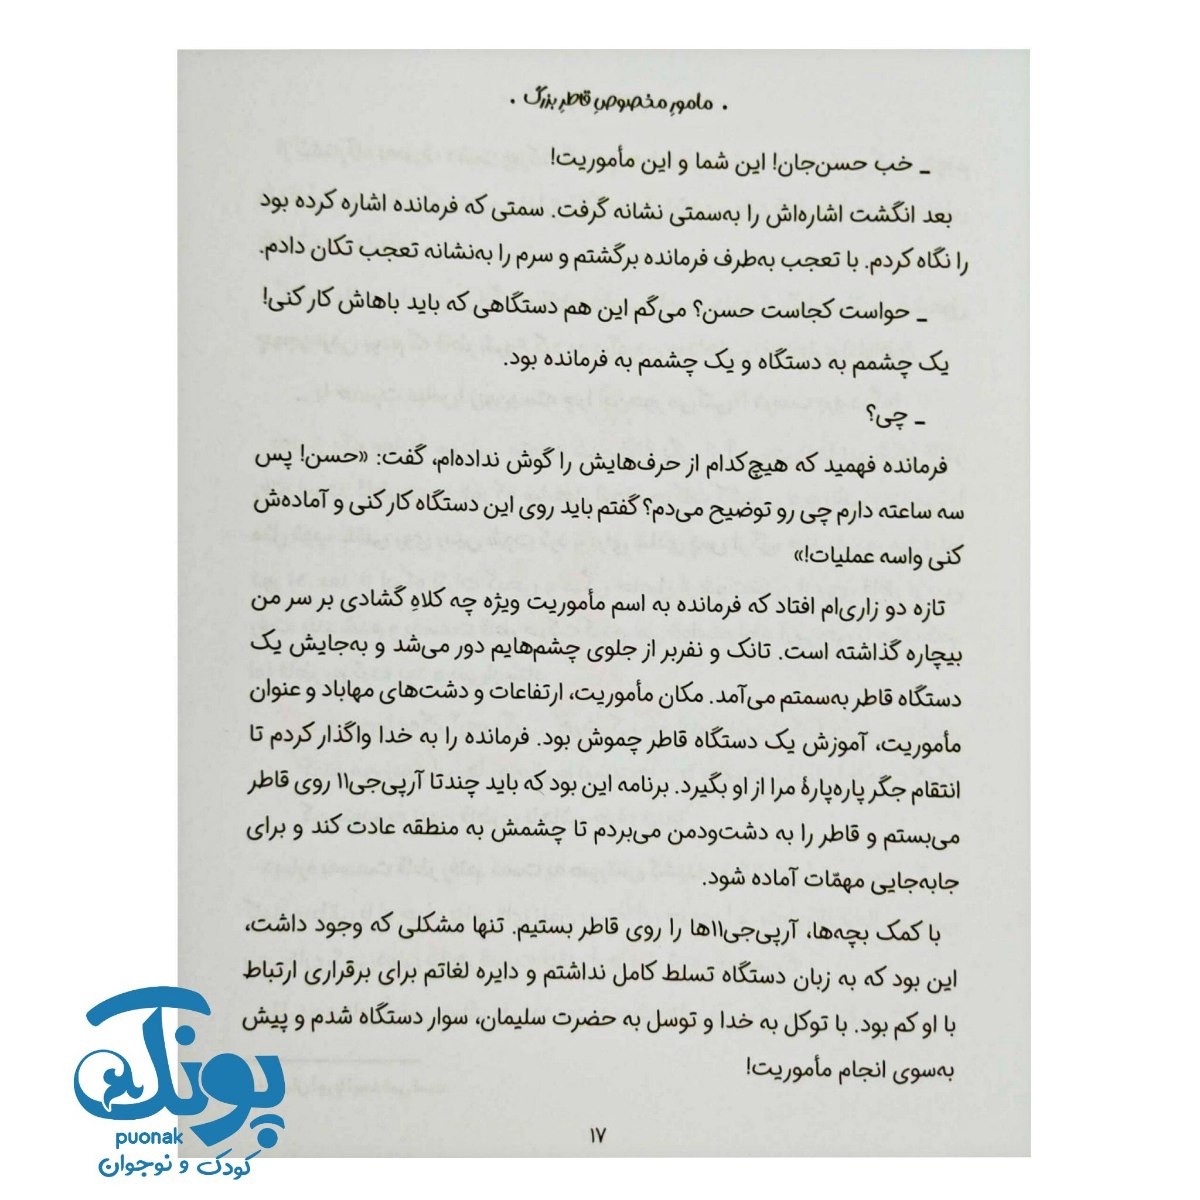 . مامورِ مخصوصِ قاطرِ بزرگ .
ـ خب حسن‌جان! این شما و این مأموریت!
بعد انگشت اشاره‌اش را به‌سمتی نشانه گرفت. سمتی که فرمانده اشاره کرده بود
را نگاه کردم. با تعجب به‌طرف فرمانده برگشتم و سرم را به‌نشانه تعجب تکان دادم.
ـ حواست کجاست حسن؟ می‌گم این هم دستگاهی که باید باهاش کار کنی!
یک چشمم به دستگاه و یک چشمم به فرمانده بود.
ـ چی؟
فرمانده فهمید که هیچ‌کدام از حرف‌هایش را گوش نداده‌ام، گفت: «حسن! پس
سه ساعته دارم چی رو توضیح می‌دم؟ گفتم باید روی این دستگاه کار کنی و آماده‌ش
کنی واسه عملیات!»
تازه دو زاری‌ام افتاد که فرمانده به اسم مأموریت ویژه چه کلاهِ گشادی بر سر من
بیچاره گذاشته است. تانک و نفربر از جلوی چشم‌هایم دور می‌شد و به‌جایش یک
دستگاه قاطر به‌سمتم می‌آمد. مکان مأموریت، ارتفاعات و دشت‌های مهاباد و عنوان
مأموریت، آموزش یک دستگاه قاطر چموش بود. فرمانده را به خدا واگذار کردم تا
انتقام جگر پاره‌پارهٔ مرا از او بگیرد. برنامه این بود که باید چندتا آرپی‌جی۱۱ روی قاطر
می‌بستم و قاطر را به دشت‌ودمن می‌بردم تا چشمش به منطقه عادت کند و برای
جابه‌جایی مهمّات آماده شود.
با کمک بچه‌ها، آرپی‌جی۱۱ها را روی قاطر بستیم. تنها مشکلی که وجود داشت،
این بود که به زبان دستگاه تسلط کامل نداشتم و دایره لغاتم برای برقراری ارتباط
با او کم بود. با توکل به خدا و توسل به حضرت سلیمان، سوار دستگاه شدم و پیش
به‌سوی انجام مأموریت!
۱۷
پونک
puonak
کودک و نوجوان